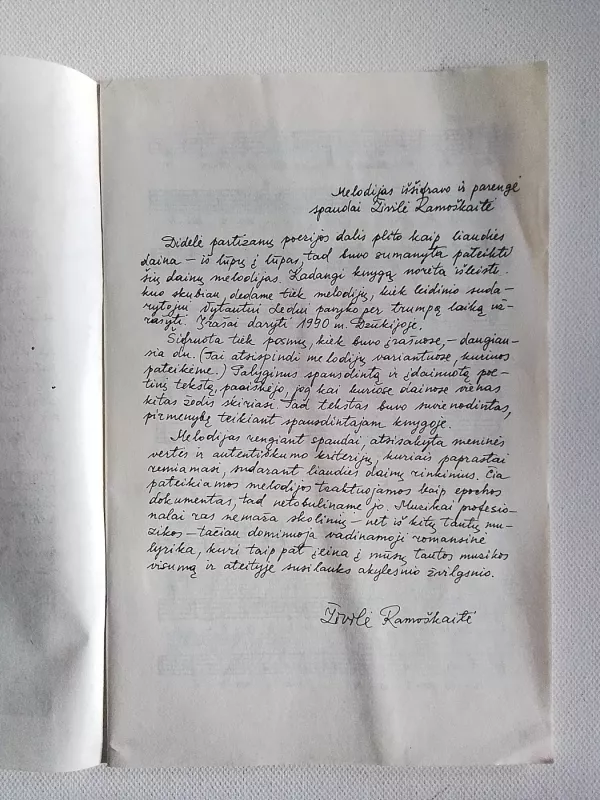 Melodijas iššifravo ir parengė
spaudai Živilė Ramoškaitė
Didelė partizanų poezijos dalis plito kaip liaudies
daina – iš lūpų į lūpas, tad buvo sumanyta pateikti
šių dainų melodijas. Kadangi knygą norėta išleisti
kuo skubiau, dedame tiek melodijų, kiek leidinio suda-
rytojui Vytautui Ledui pavyko per trumpą laiką už-
rašyti. Įrašai daryti 1990 m. Dzūkijoje.
Šifruota tiek posmų, kiek buvo įrašuose, – daugiau-
sia du. (Tai atsispindi melodijų variantuose, kuriuos
pateikėme.) Palyginus spausdintą ir įdainuotą poe-
tinį tekstą, paaiškėjo, jog kai kuriose dainose vienas
kitas žodis skiriasi. Tad tekstas buvo suvienodintas,
pirmenybę teikiant spausdintajam knygoje.
Melodijas rengiant spaudai, atsisakyta meninės
vertės ir autentiškumo kriterijų, kuriais paprastai
remiamasi, sudarant liaudies dainų rinkinius. Čia
pateikiamos melodijos traktuojamos kaip epochos
dokumentas, tad netobuliname jo. Muzikai profesio-
nalai ras nemaža skolinių – net iš kitų tautų mu-
zikos – tačiau dominuoja vadinamoji romansinė
lyrika, kuri taip pat įeina į mūsų tautos muzikos
visumą ir ateityje susilauks akylesnio žvilgsnio.
Živilė Ramoškaitė